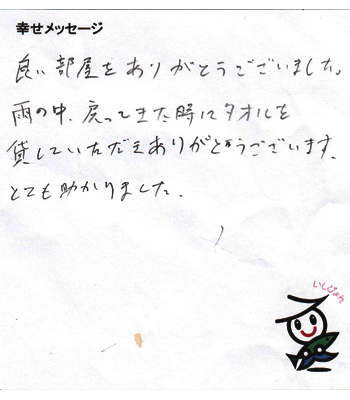 幸せメッセージ
良い部屋をありがとうございました。
雨の中、戻ってきた時にタオルを
貸していただきありがとうございます。
とても助かりました。
いしぴょん